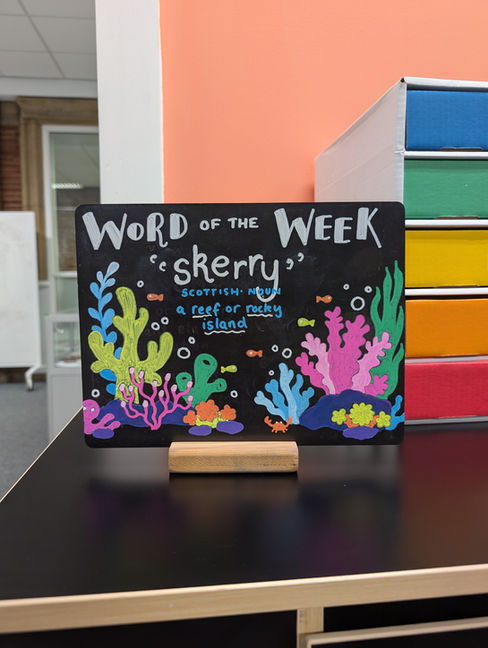 WORD OF THE WEEK
"skerry"
SCOTTISH · NOUN
a reef or rocky
island